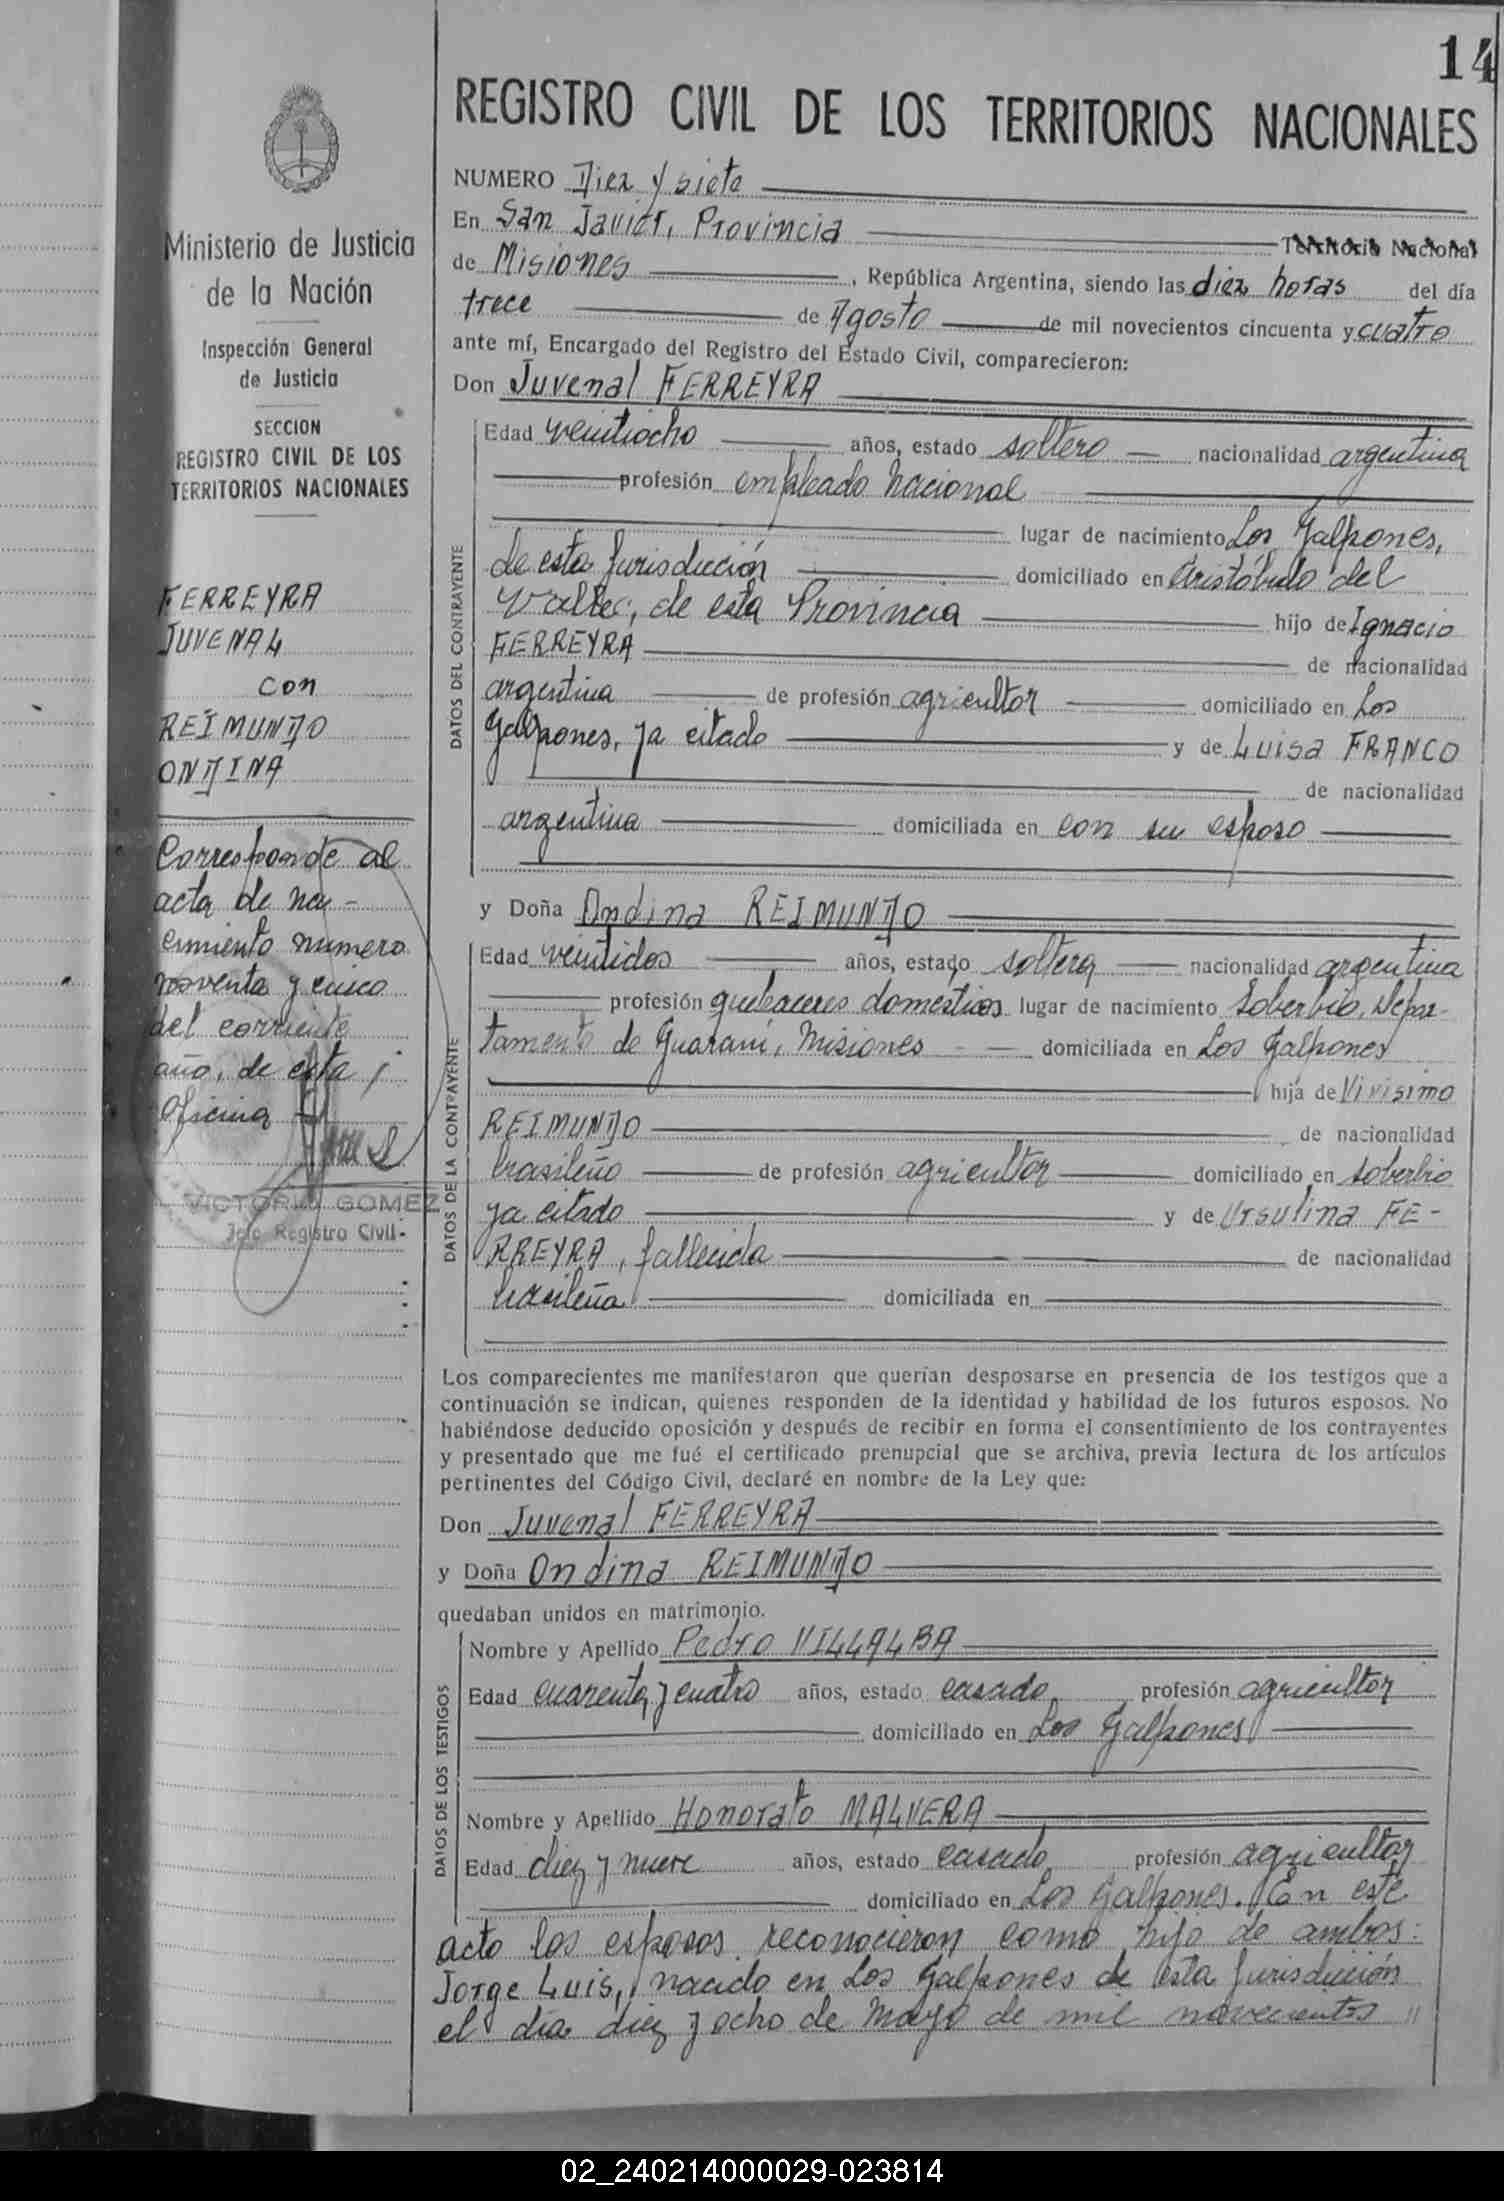 14
REGISTRO CIVIL DE LOS TERRITORIOS NACIONALES
NUMERO Diez y siete
En San Javier, Provincia Territorio Nacional
de Misiones, República Argentina, siendo las diez horas del día
trece de Agosto de mil novecientos cincuenta y cuatro
ante mí, Encargado del Registro del Estado Civil, comparecieron:
Don Juvenal FERREYRA
DATOS DEL CONTRAYENTE
Edad veintiocho años, estado soltero nacionalidad argentina
profesión empleado Nacional
lugar de nacimiento Los Galpones,
de esta jurisdicción domiciliado en Aristóbulo del
Valle, de esta Provincia hijo de Ignacio
FERREYRA de nacionalidad
argentina de profesión agricultor domiciliado en Los
Galpones, ya citado y de Luisa FRANCO
de nacionalidad
argentina domiciliada en con su esposo
y Doña Ondina REIMUNDO
DATOS DE LA CONTRAYENTE
Edad veintidos años, estado soltera nacionalidad argentina
profesión quehaceres domesticos lugar de nacimiento Soberbio, Depar-
tamento de Guaraní, Misiones domiciliada en Los Galpones
hija de Vivisimo
REIMUNDO de nacionalidad
brasileño de profesión agricultor domiciliado en Soberbio
ya citado y de Ursulina FE-
RREYRA, fallecida de nacionalidad
brasileña domiciliada en
Los comparecientes me manifestaron que querían desposarse en presencia de los testigos que a
continuación se indican, quienes responden de la identidad y habilidad de los futuros esposos. No
habiéndose deducido oposición y después de recibir en forma el consentimiento de los contrayentes
y presentado que me fué el certificado prenupcial que se archiva, previa lectura de los artículos
pertinentes del Código Civil, declaré en nombre de la Ley que:
Don Juvenal FERREYRA
y Doña Ondina REIMUNDO
quedaban unidos en matrimonio.
DATOS DE LOS TESTIGOS
Nombre y Apellido Pedro VILLALBA
Edad cuarenta y cuatro años, estado casado profesión agricultor
domiciliado en Los Galpones
Nombre y Apellido Honorato MALVERA
Edad diez y nueve años, estado casado profesión agricultor
domiciliado en Los Galpones. En este
acto los esposos reconocieron como hijo de ambos:
Jorge Luis, nacido en Los Galpones de esta jurisdicción
el día diez y ocho de Mayo de mil novecientos //
Ministerio de Justicia
de la Nación
Inspección General
de Justicia
SECCION
REGISTRO CIVIL DE LOS
TERRITORIOS NACIONALES
FERREYRA
JUVENAL
con
REIMUNDO
ONDINA
Corresponde al
acta de na-
cimiento numero
noventa y cinco
del corriente
año, de esta
Oficina
VICTORIA GOMEZ
Jefe Registro Civil
02_240214000029-023814